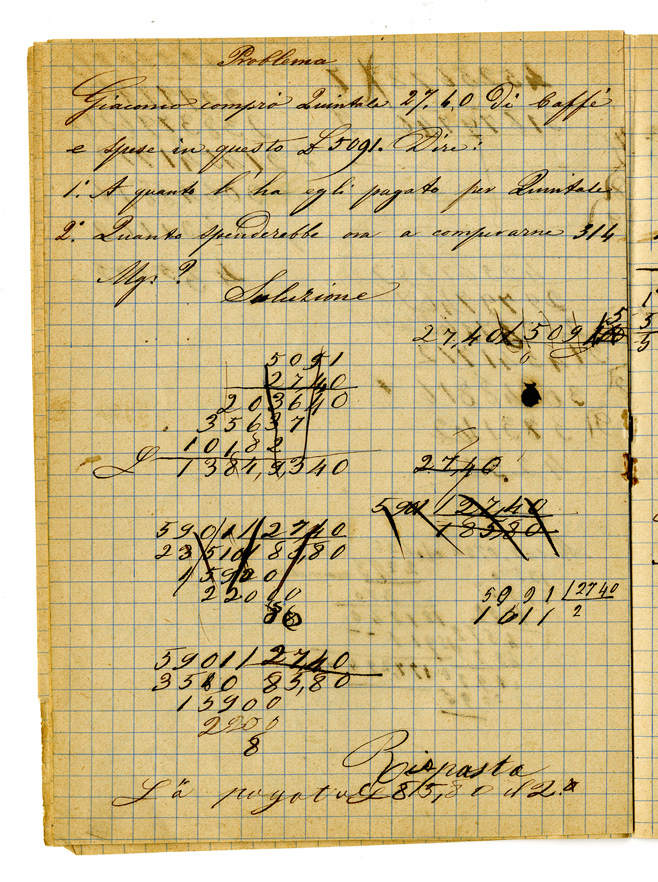 Problema
Giacomo comprò Quintale 27.40 di Caffé
e spese in questo £ 5091. Dire:
1.° A quanto l'ha egli pagato per Quintale
2.° Quanto spenderebbe ora a comperarne 314
Mgs?
Soluzione
27,40 509
5091
2740
203640
35637
10182
£ 1384,9340
2740
2740
185,80
59011 2740
235101 85,80
15920
22000
5091 2740
1611 2
59011 2740
3510 85,80
15900
2200
8
Risposta
L'a pagato £ 85,80 il Q.a